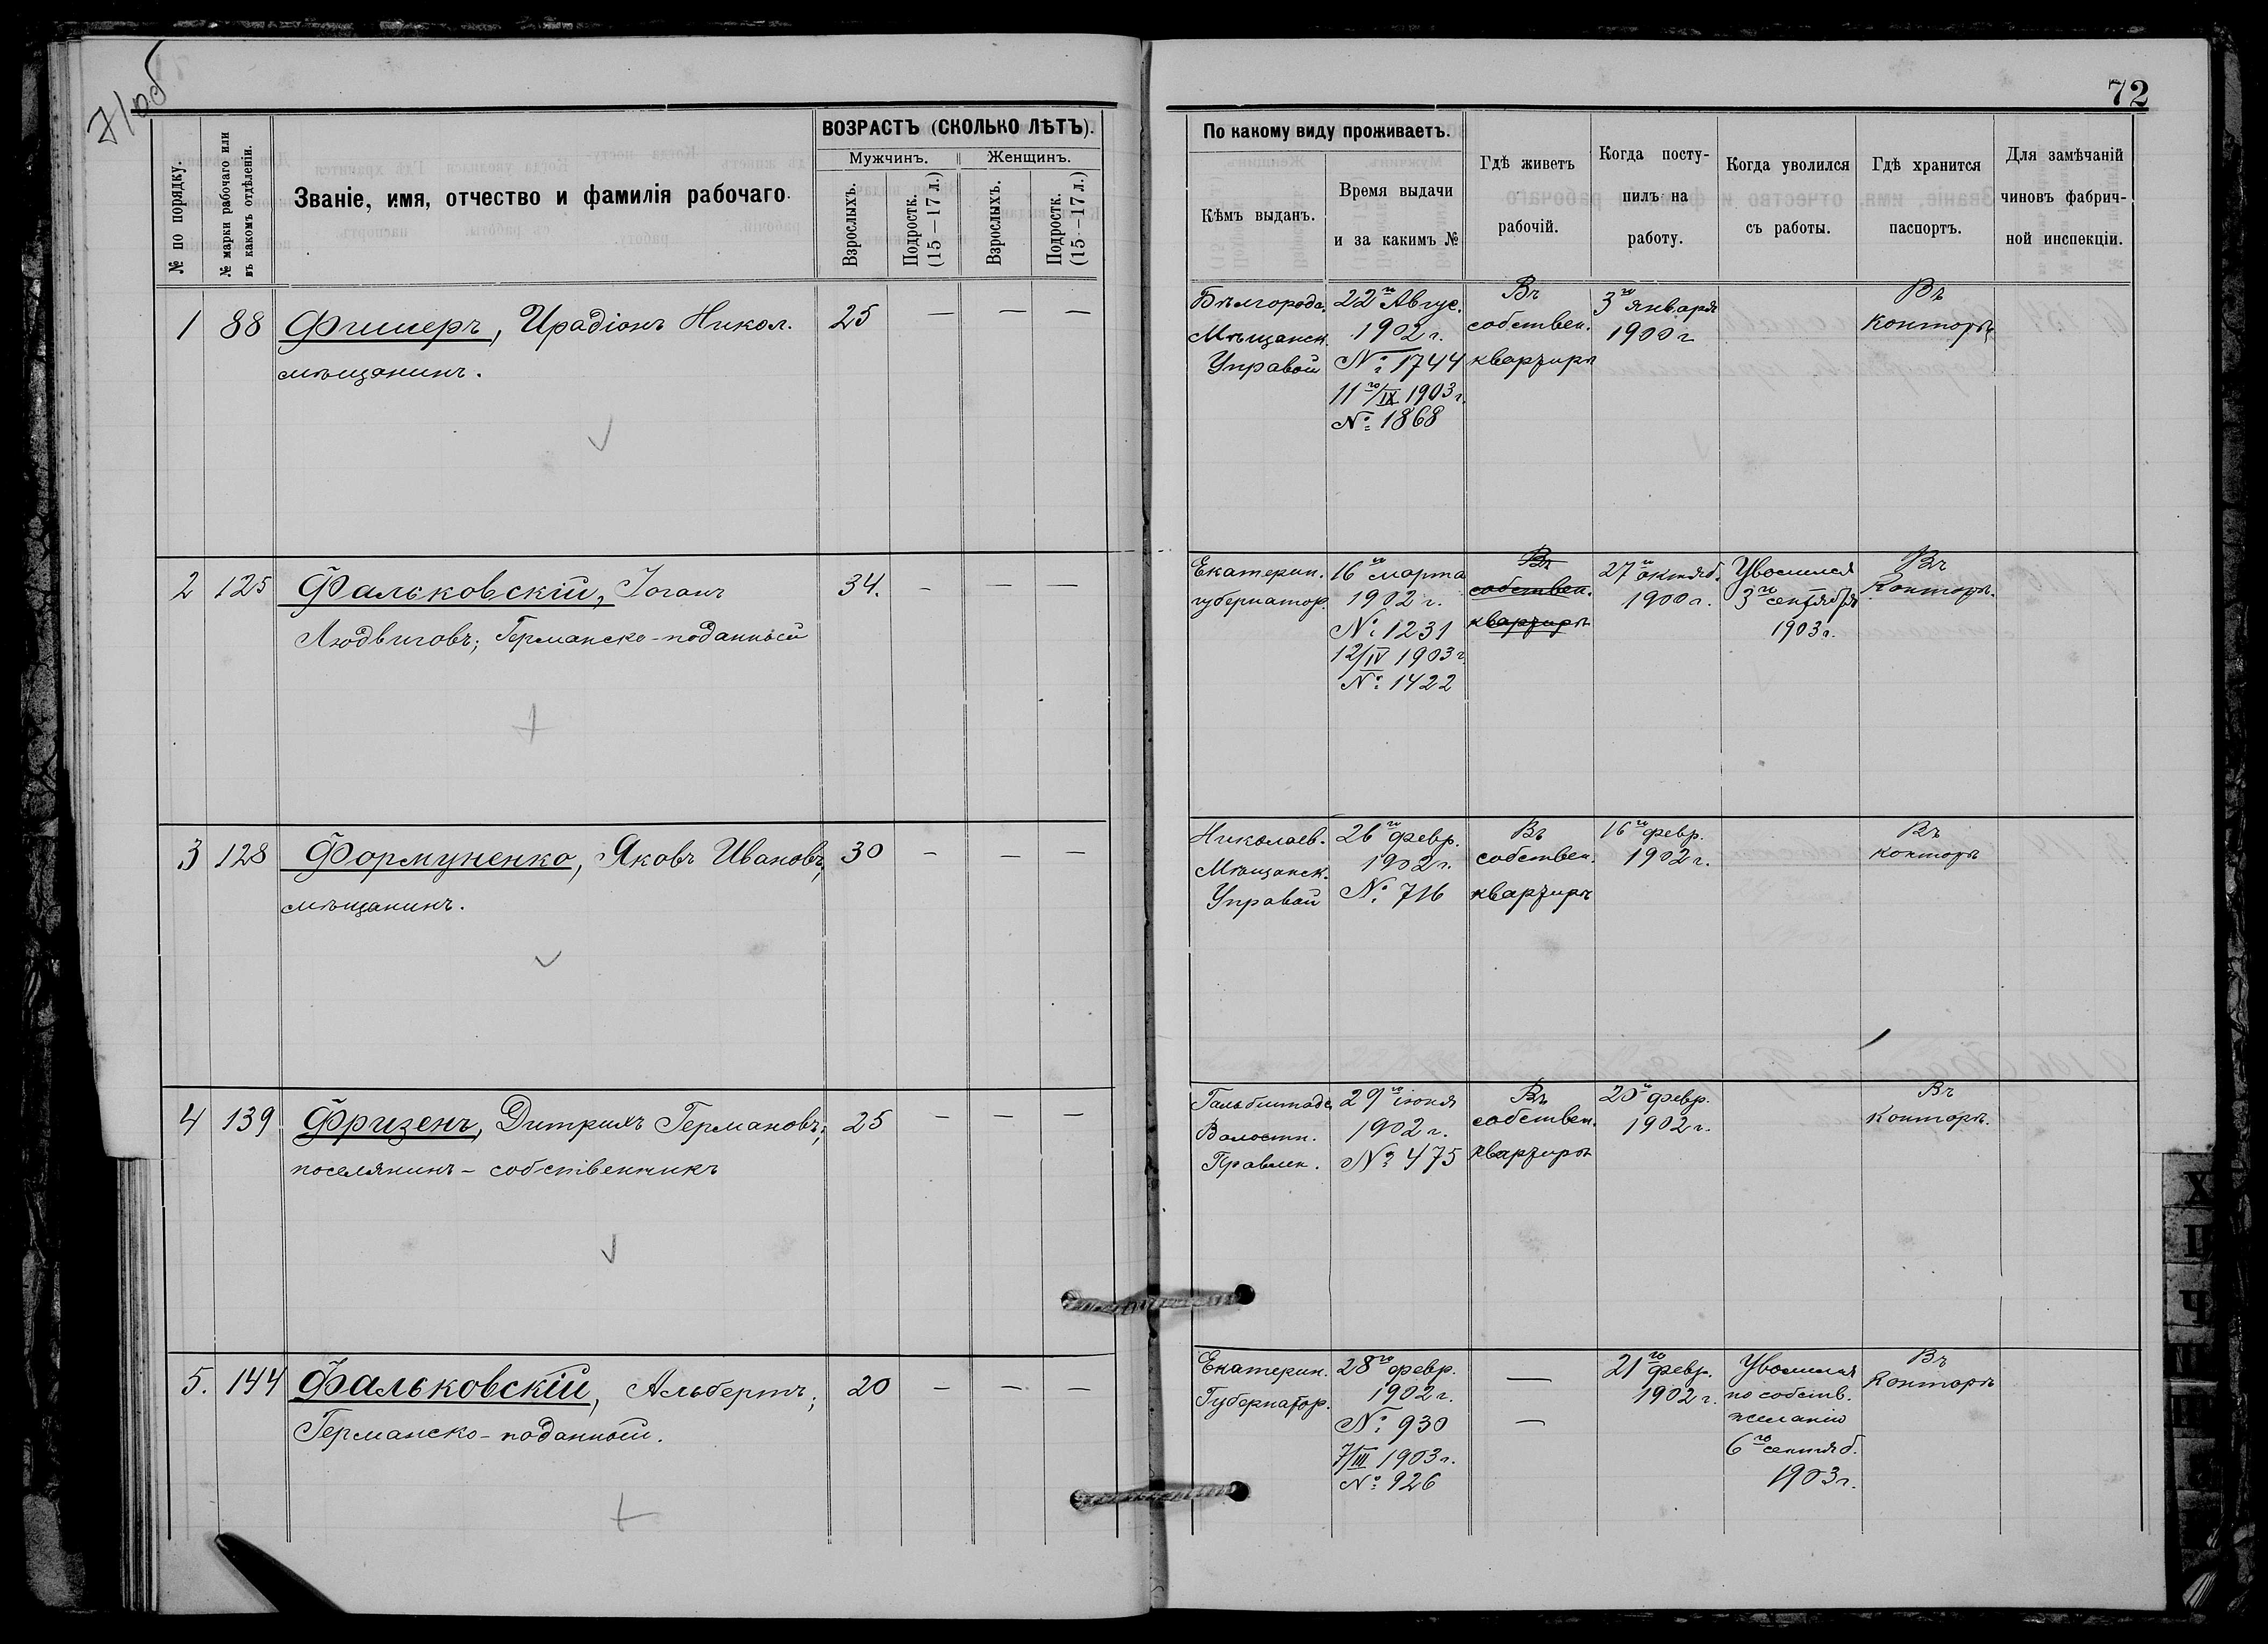 71об
72
№ по порядку.
№ марки рабочаго или въ какомъ отдѣленіи.
Званіе, имя, отчество и фамилія рабочаго.
ВОЗРАСТЪ (СКОЛЬКО ЛѢТЪ).
Мужчинъ.
Женщинъ.
Взрослыхъ.
Подростк. (15—17 л.)
Взрослыхъ.
Подростк. (15—17 л.)
По какому виду проживаетъ.
Кѣмъ выданъ.
Время выдачи
и за какимъ №
Гдѣ живетъ
рабочій.
Когда посту-
пилъ на
работу.
Когда уволился
съ работы.
Гдѣ хранится
паспортъ.
Для замѣчаній
чиновъ фабрич-
ной инспекціи.
1 88 Фишеръ, Ирадіонъ Никол. 25 — — —
мѣщанинъ.
Бѣлгорода.
Мѣщанск.
Управой
22го Авгус.
1902 г.
№ 1744
11го/IX 1903 г.
№ 1868
Въ
собствен.
квартирѣ
3го Января
1900 г
Въ
Конторѣ
2 125 Фальковскій, Іоганъ 34. — — —
Людвиговъ; Германско-поданный
Екатерин.
губернатор.
16го марта
1902 г.
№ 1231
12/IV 1903 г.
№ 1422
Въ
собствен.
квартирѣ
27го октяб.
1900 г.
Уволился
3го сентября
1903 г.
Въ
Конторѣ.
3 128 Формуненко, Яковъ Ивановъ, 30 — — —
мѣщанинъ.
Николаев.
Мѣщанск.
Управой
26го февр.
1902 г.
№ 716
Въ
собствен.
квартирѣ
16го февр.
1902 г.
Въ
конторѣ
4 139 Фризенъ, Дитрихъ Германовъ; 25 — — —
поселянинъ - собственникъ
Гальбштадс
Волостн.
Правлен.
29го іюня
1902 г.
№ 475
Въ
собствен.
квартирѣ
20го февр.
1902 г.
Въ
Конторѣ.
5. 144 Фальковскій, Альбертъ; 20 — — —
Германско-поданный.
Екатерин.
Губернатор.
28го февр.
1902 г.
№ 930
7/III 1903 г.
№ 926
—
—
21го февр.
1902 г.
Уволился
по собств.
желанію
6го сентяб.
1903 г.
Въ
Конторѣ